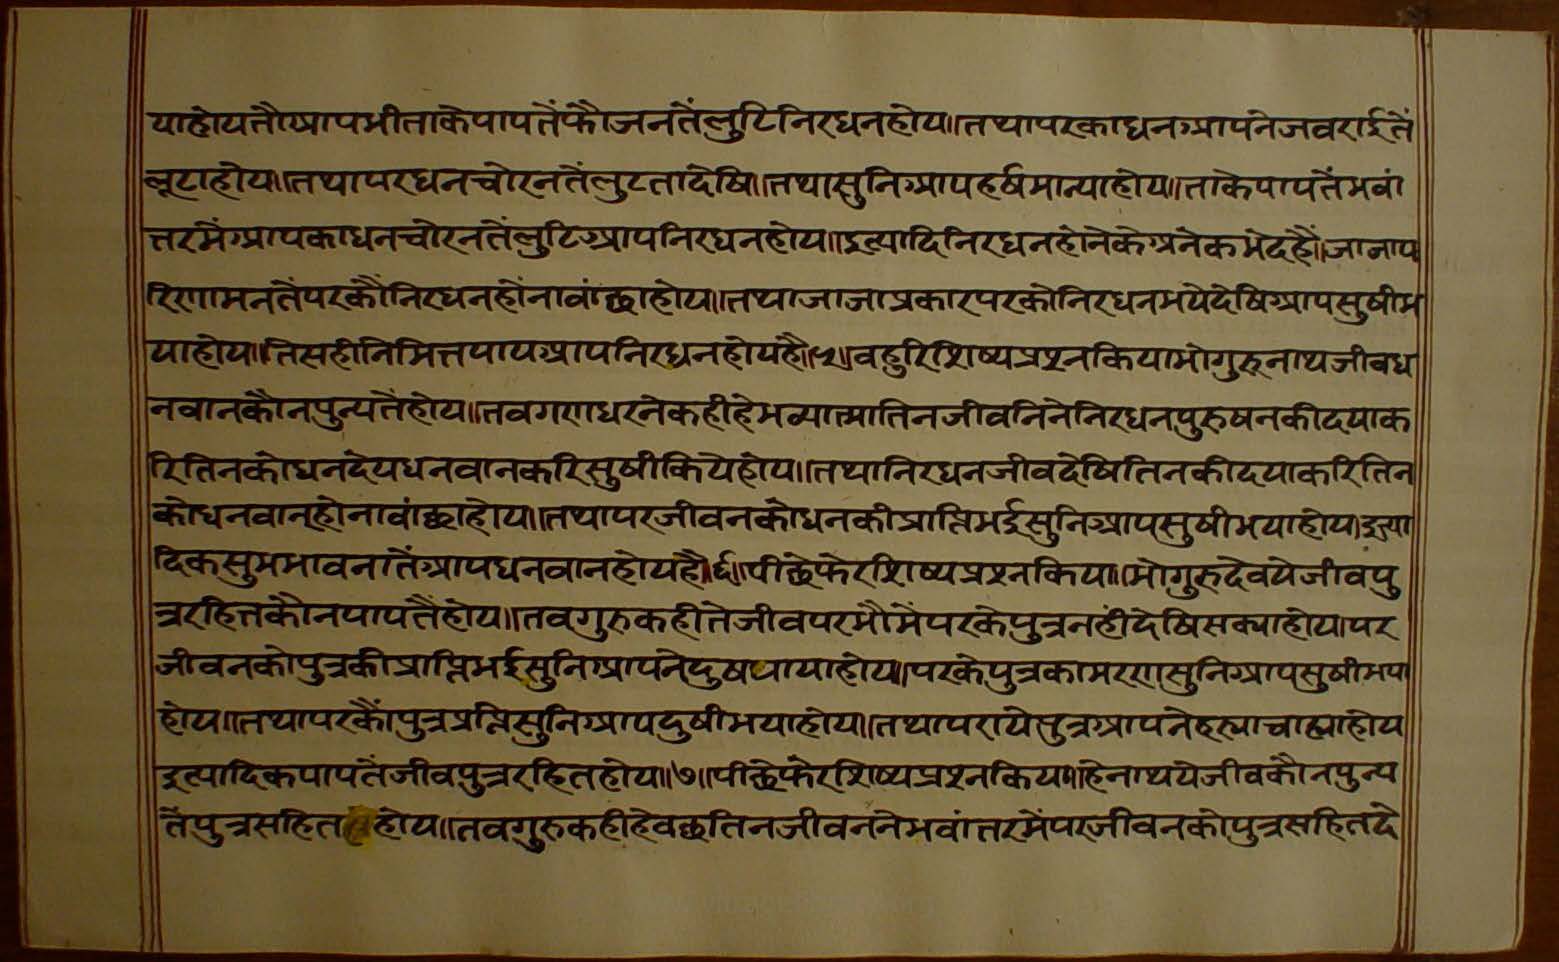 याहोयतौआपभीताकेपापतैंफौजनतैंलुटिनिरधनहोय॥तथापरकाधनआपनेजवराईतैं
लूटाहोय॥तथापरधनचोरनतैंलुटतादेषि॥तथासुनिआपहर्षमान्याहोय॥ताकेपापतैंभवां
त्तरमैंआपकाधनचोरनतैंलुटिआपनिरधनहोय॥इत्यादिनिरधनहोनेकेअनेकभेदहैं॥जाजाप
रिणामनतैंपरकौंनिरधनहोंनावांछाहोय॥तथाजाजाप्रकारपरकोनिरधनभयेदेषिआपसुषीभ
याहोय॥तिसहीनिमित्तपायआपनिरधनहोयहै॥५॥वहुरिशिष्यप्रश्नकियाभोगुरुनाथजीवध
नवानकौनपुन्यतैहोय॥तवगणधरनेकहीहेभव्यात्मातिनजीवनिनेनिरधनपुरुषनकीदयाक
रितिनकोधनदेयधनवानकरिसुषीकियेहोय॥तथानिरधनजीवदेषितिनकीदयाकरितिन
कोधनवानहोनावांछाहोय॥तथापरजीवनकौधनकीप्राप्तिभईसुनिआपसुषीभयाहोय॥इत्या
दिकसुभभावनातैंआपधनवानहोयहै॥६॥पीछेफेरशिष्यप्रश्नकिया॥भोगुरुदेवयेजीवपु
त्ररहित्तकौनपापतैंहोय॥तवगुरुकहीतेजीवपरभौमैंपरकेपुत्रनहींदेषिसक्याहोय॥पर
जीवनकोपुत्रकीप्राप्तिभईसुनिआपनेदुषपायाहोय॥परकेपुत्रकामरणसुनिआपसुषीभया
होय॥तथापरकौंपुत्रप्रप्तिसुनिआपदुषीभयाहोय॥तथापरायेसुत्रआपनेहत्याचाह्याहोय
इत्यादिकपापतैंजीवपुत्ररहितहोय॥७॥पीछेफेरशिष्यप्रश्नकिया॥हेनाथयेजीवकौनपुन्य
तैंपुत्रसहितहोय॥तवगुरुकहीहेवछतिनजीवननेभवांत्तरमैंपरजीवनकोपुत्रसहितदे